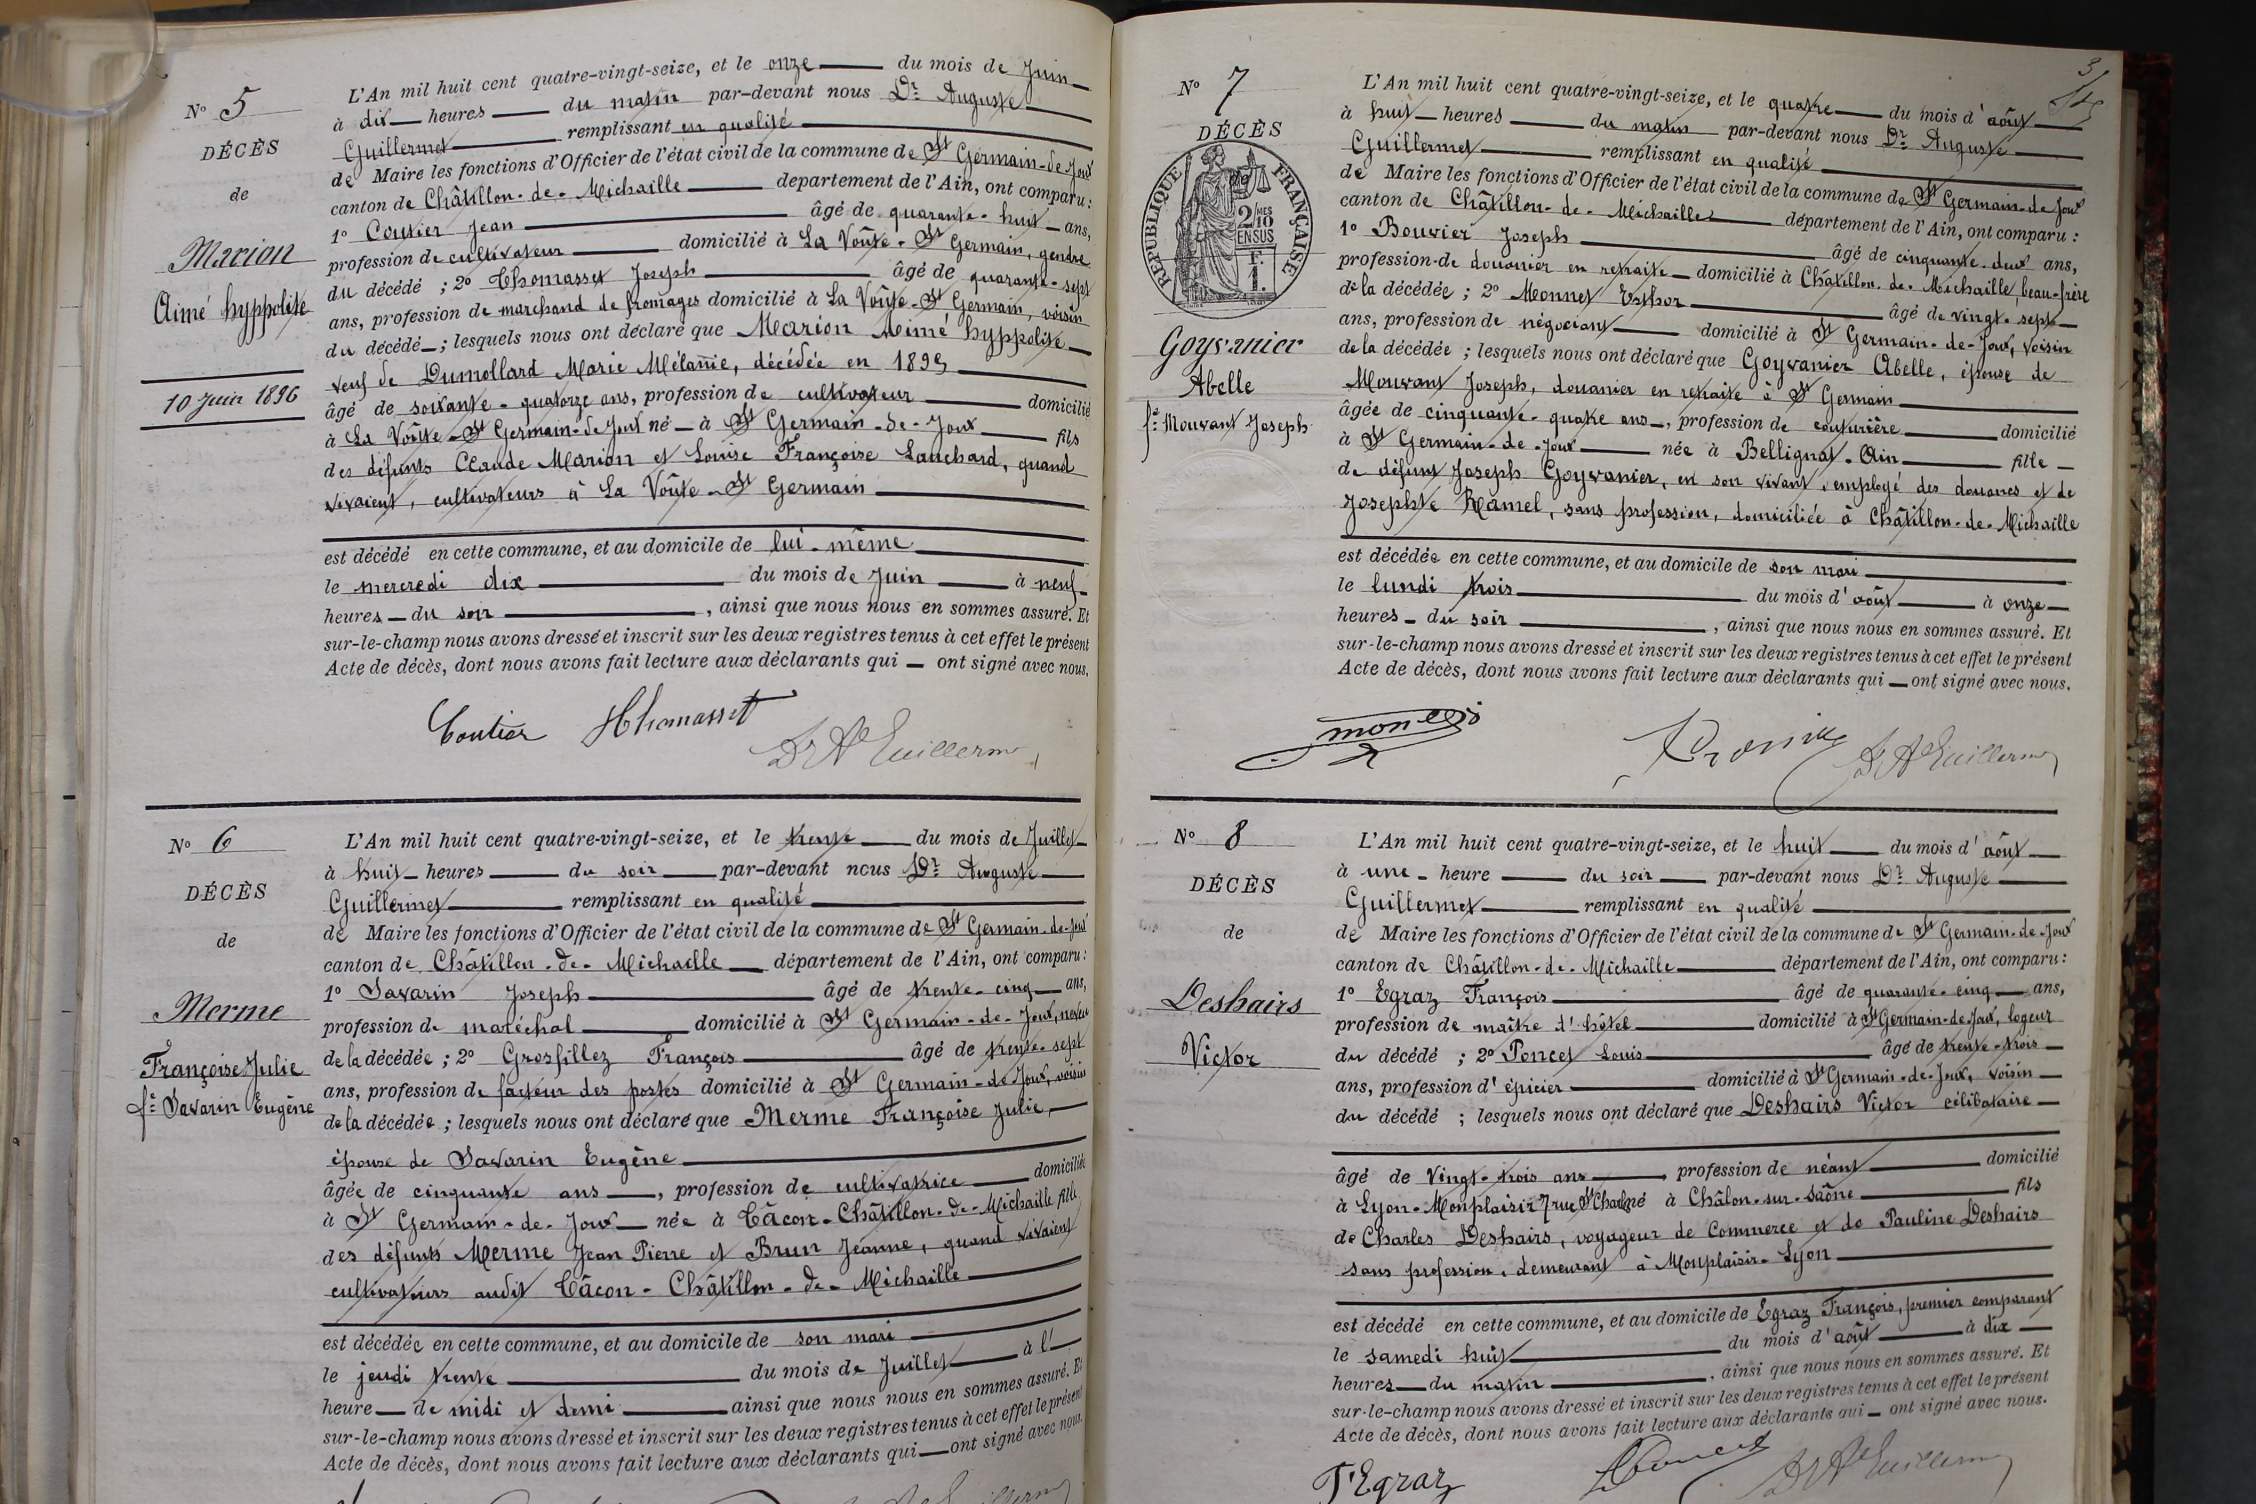 N° 5
DÉCÈS
de
Marion
Aimé hyppolite
10 Juin 1896
L'An mil huit cent quatre-vingt-seize, et le onze du mois de Juin
à dix heures du matin par-devant nous Dr Auguste
Guillermet remplissant en qualité
de Maire les fonctions d'Officier de l'état civil de la commune de St Germain-de-Joux
canton de Châtillon-de-Michaille departement de l'Ain, ont comparu:
1° Coutier Jean âgé de quarante-huit ans,
profession de cultivateur domicilié à La Voûte-St Germain, gendre
du décédé ; 2° Thomasset Joseph âgé de quarante-sept
ans, profession de marchand de fromages domicilié à La Voûte-St Germain, voisin
du décédé ; lesquels nous ont déclaré que Marion Aimé hyppolite
veuf de Dumollard Marie Mélanie, décédée en 1895
âgé de soixante-quatorze ans, profession de cultivateur domicilié
à La Voûte-St Germain-de-Joux né à St Germain-de-Joux fils
des défunts Claude Marion et Louise Françoise Lanchard, quand
vivaient, cultivateurs à La Voûte-St Germain
est décédé en cette commune, et au domicile de lui-même
le mercredi dix du mois de Juin à neuf
heures du soir, ainsi que nous nous en sommes assuré. Et
sur-le-champ nous avons dressé et inscrit sur les deux registres tenus à cet effet le présent
Acte de décès, dont nous avons fait lecture aux déclarants qui ont signé avec nous.
Coutier JThomasset
Dr Ate Guillermet
N° 6
DÉCÈS
de
Merme
Françoise Julie
fe Savarin Eugène
L'An mil huit cent quatre-vingt-seize, et le trente du mois de Juillet
à huit heures du soir par-devant nous Dr Auguste
Guillermet remplissant en qualité
de Maire les fonctions d'Officier de l'état civil de la commune de St Germain-de-Joux
canton de Châtillon-de-Michaille département de l'Ain, ont comparu:
1° Savarin Joseph âgé de trente-cinq ans,
profession de maréchal domicilié à St Germain-de-Joux, neveu
de la décédée ; 2° Grosfillez François âgé de trente-sept
ans, profession de facteur des postes domicilié à St Germain-de-Joux, voisin
de la décédée ; lesquels nous ont déclaré que Merme Françoise Julie,
épouse de Savarin Eugène
âgée de cinquante ans, profession de cultivatrice domiciliée
à St Germain-de-Joux née à Tâcon-Châtillon-de-Michaille fille
des défunts Merme Jean Pierre et Brun Jeanne, quand vivaient
cultivateurs audit Tâcon-Châtillon-de-Michaille
est décédée en cette commune, et au domicile de son mari
le jeudi trente du mois de Juillet à l'
heure de midi et demi ainsi que nous nous en sommes assuré. Et
sur-le-champ nous avons dressé et inscrit sur les deux registres tenus à cet effet le présent
Acte de décès, dont nous avons fait lecture aux déclarants qui ont signé avec nous.
3
N° 7
DÉCÈS
de
RÉPUBLIQUE FRANÇAISE
2/10MES
EN SUS
F.
1.
Goyvanier
Abelle
fe Mouvant Joseph
L'An mil huit cent quatre-vingt-seize, et le quatre du mois d'août
à huit heures du matin par-devant nous Dr Auguste
Guillermet remplissant en qualité
de Maire les fonctions d'Officier de l'état civil de la commune de St Germain-de-Joux
canton de Châtillon-de-Michaille département de l'Ain, ont comparu :
1° Bouvier Joseph âgé de cinquante-deux ans,
profession de douanier en retraite domicilié à Châtillon-de-Michaille, beau-frère
de la décédée ; 2° Monnet Esther âgé de vingt-sept
ans, profession de négociant domicilié à St Germain-de-Joux, voisin
de la décédée ; lesquels nous ont déclaré que Goyvanier Abelle, épouse de
Mouvant Joseph, douanier en retraite à St Germain
âgée de cinquante-quatre ans, profession de couturière domicilié
à St Germain-de-Joux née à Bellignat-Ain fille
de défunt Joseph Goyvanier, en son vivant, employé des douanes et de
Josephte Ramel, sans profession, domiciliée à Châtillon-de-Michaille
est décédée en cette commune, et au domicile de son mari
le lundi trois du mois d'août à onze
heures du soir, ainsi que nous nous en sommes assuré. Et
sur-le-champ nous avons dressé et inscrit sur les deux registres tenus à cet effet le présent
Acte de décès, dont nous avons fait lecture aux déclarants qui ont signé avec nous.
Dr Ate Guillermet
N° 8
DÉCÈS
de
Deshairs
Victor
L'An mil huit cent quatre-vingt-seize, et le huit du mois d'août
à une heure du soir par-devant nous Dr Auguste
Guillermet remplissant en qualité
de Maire les fonctions d'Officier de l'état civil de la commune de St Germain-de-Joux
canton de Châtillon-de-Michaille département de l'Ain, ont comparu:
1° Egraz François âgé de quarante-cinq ans,
profession de maître d'hôtel domicilié à St Germain-de-Joux, logeur
du décédé ; 2° Poncet Louis âgé de trente-trois
ans, profession d'épicier domicilié à St Germain-de-Joux, voisin
du décédé ; lesquels nous ont déclaré que Deshairs Victor célibataire
âgé de vingt-trois ans, profession de néant domicilié
à Lyon-Monplaisir 7 rue St Charles né à Châlon-sur-Saône fils
de Charles Deshairs, voyageur de Commerce et de Pauline Deshairs
sans profession, demeurant à Monplaisir-Lyon
est décédé en cette commune, et au domicile de Egraz François, premier comparant
le samedi huit du mois d'août à dix
heures du matin, ainsi que nous nous en sommes assuré. Et
sur-le-champ nous avons dressé et inscrit sur les deux registres tenus à cet effet le présent
Acte de décès, dont nous avons fait lecture aux déclarants qui ont signé avec nous.
F Egraz LPoncet Dr Ate Guillermet